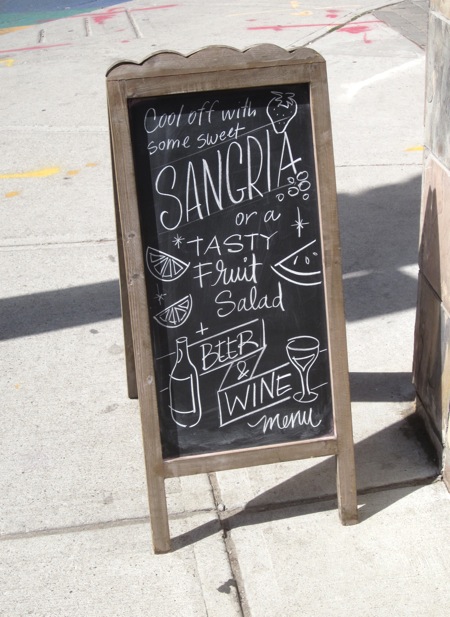 Cool off with
some sweet
SANGRIA
or a
TASTY
Fruit
Salad
+
BEER
&
WINE
menu